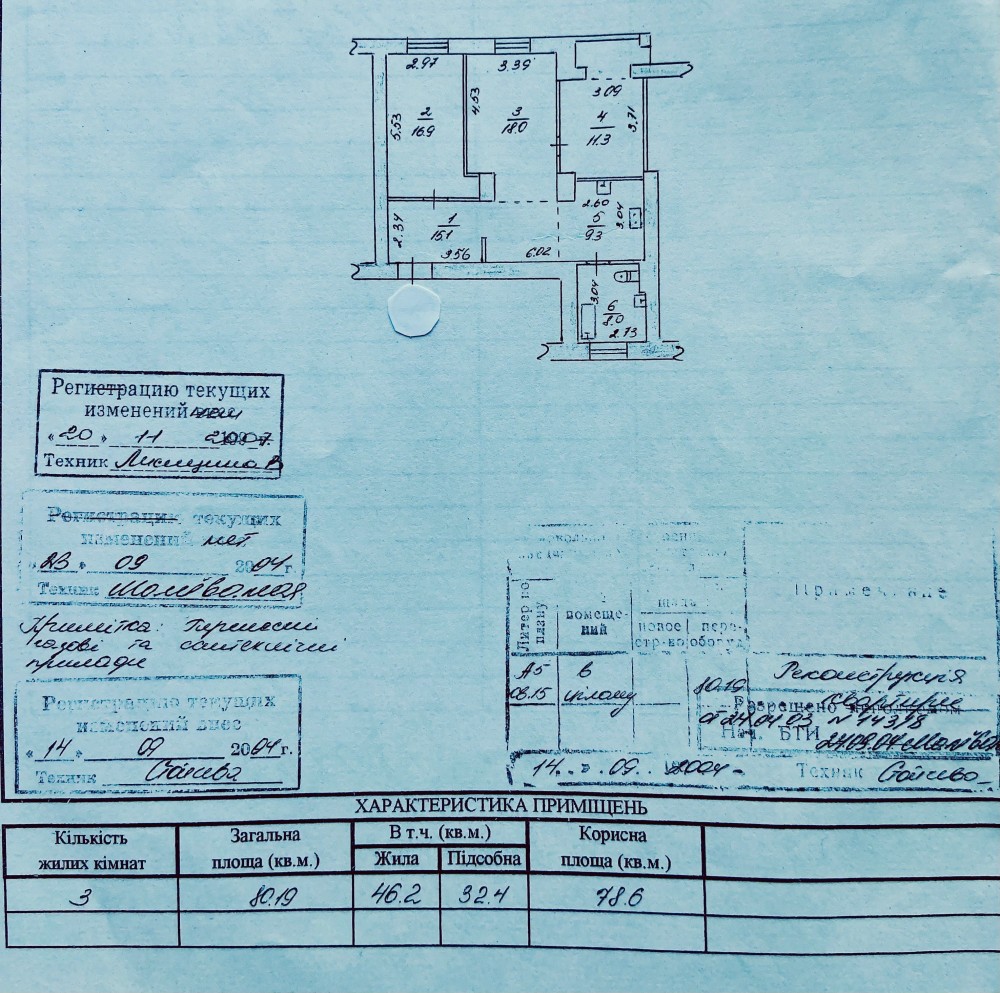 2.97
3.39
3.09
5.53
2
16.9
4.53
3
18.0
4
11.3
3.71
2.34
1
15.1
3.56
6.02
2.60
5
9.3
3.04
3.04
6
8.0
2.73
Регистрацию текущих
изменений
« 20 » 11 2007.
Техник
Регистрацию текущих
изменений нет
« 23 » 09 2004 г.
Техник
Примітка:
газові та сантехнічні
прилади
Регистрацию текущих
изменений внес
« 14 » 09 2004 г.
Техник
Литер по плану
помеще-
ний
Примечание
новое
стр-во
пере-
оборуд.
А5 в
08.15 цілому
80.19
Реконструкція
квартири
Разрешено
от 24.04.03 N
Нач. БТИ
14 » 09 2004
Техник
ХАРАКТЕРИСТИКА ПРИМІЩЕНЬ
Кількість
жилих кімнат
Загальна
площа (кв.м.)
В т.ч. (кв.м.)
Жила Підсобна
Корисна
площа (кв.м.)
3 80.19 46.2 32.4 78.6